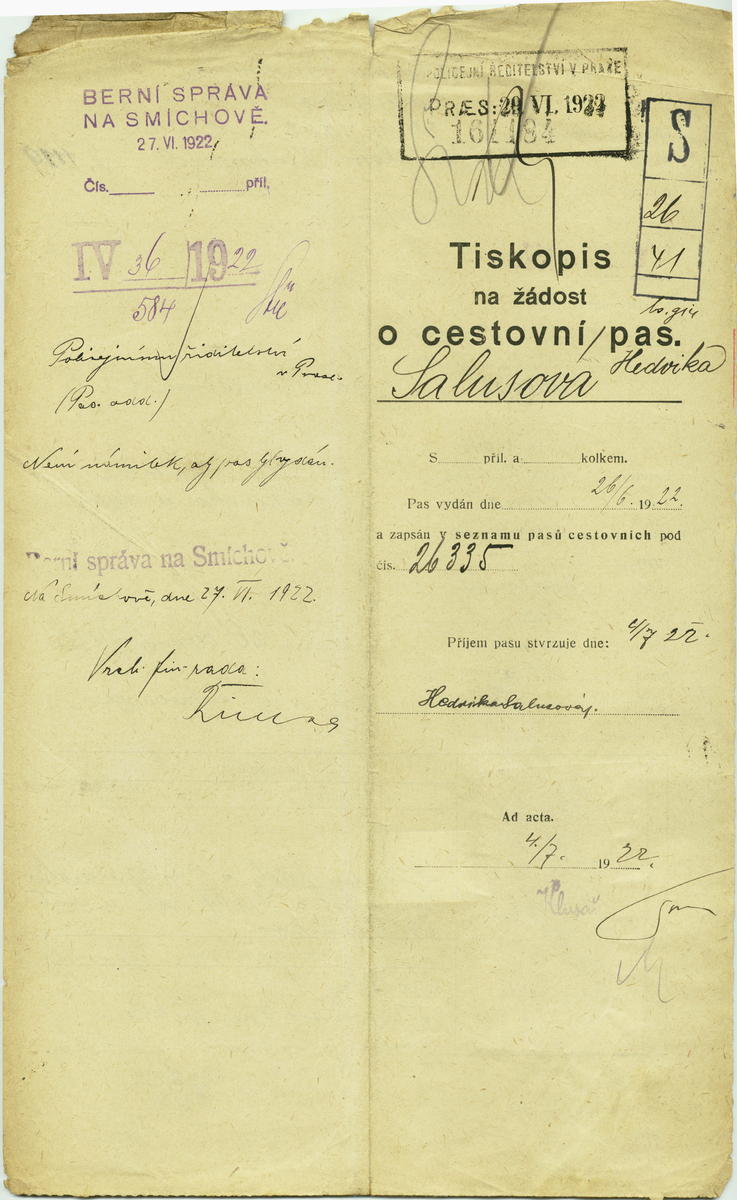 BERNÍ SPRÁVA
NA SMÍCHOVĚ.
27. VI. 1922
Čís. příl.
IV 36 1922
584
Policejnímu ředitelství
v Praze
(Pas. odd.)
Není námitek, aby pas byl vydán.
Berní správa na Smíchově.
Na Smíchově, dne 27. VI. 1922.
Vrch. fin. rada:
POLICEJNÍ ŘEDITELSTVÍ V PRAZE
PRÆS: 29 VI. 1922
S
26
41
Tiskopis
na žádost
o cestovní pas.
Salusová Hedvika
S příl. a kolkem.
Pas vydán dne 26/6. 1922.
a zapsán v seznamu pasů cestovních pod
čís. 26335
Příjem pasu stvrzuje dne: 4/7 22.
Hedvika Salusová.
Ad acta.
4./7. 1922.